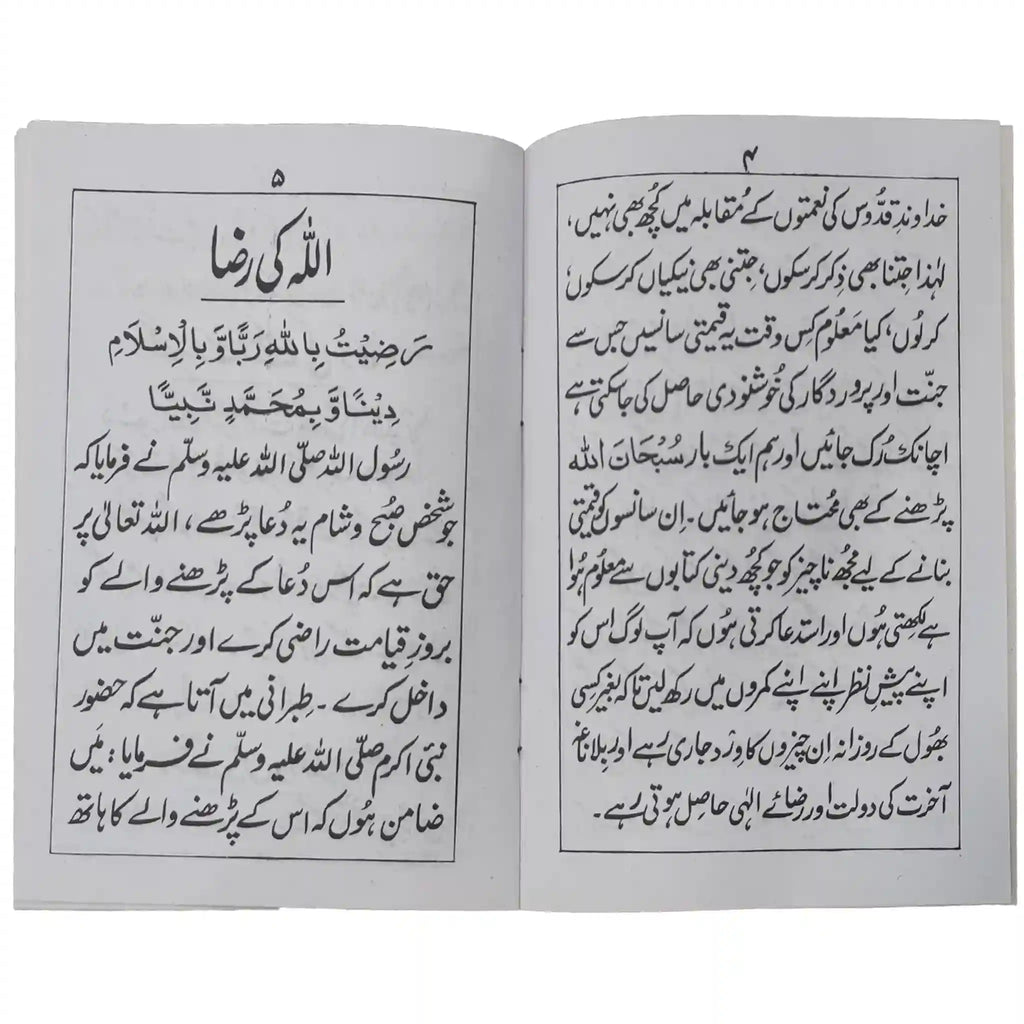 ۴
خداوندِ قدُّوس کی نعمتوں کے مُقابلہ میں کُچھ بھی نہیں،
لہٰذا جِتنا بھی ذِکر کرسکوں، جِتنی بھی نیکیاں کرسکوں
کرلُوں، کیا مَعلُوم کِس وقت یہ قیمتی سانسیں جِس سے
جنّت اور پروردگار کی خُوشنودی حاصل کی جاسکتی ہے
اچانک رُک جائیں اور ہم ایک بار سُبْحَانَ اللہ
پڑھنے کے بھی مُحتاج ہوجائیں۔ اِن سانسوں کو قیمتی
بنانے کے لیے مُجھ ناچیز کو جو کُچھ دینی کتابوں سے معلُوم ہُوا
ہے لکھتی ہُوں اور استدعا کرتی ہُوں کہ آپ لوگ اس کو
اپنے پیشِ نظر اپنے اپنے کمروں میں رکھ لیں تاکہ بغیر کِسی
بھُول کے روزانہ اِن چیزوں کا وِرْد جاری رہے اور بِلاناغہ
آخرت کی دولت اور رضائے الٰہی حاصِل ہوتی رہے۔
۵
اللہ کی رضا
رَضِيْتُ بِاللهِ رَبًّا وَّ بِالْاِسْلَامِ
دِيْنًا وَّ بِمُحَمَّدٍ نَّبِيًّا
رسُول اللہ صلّی اللہ علیہ وسلّم نے فرمایا کہ
جو شخص صُبح و شام یہ دُعا پڑھے، اللہ تعالیٰ پر
حق ہے کہ اس دُعا کے پڑھنے والے کو
بروزِ قیامت راضی کرے اور جنّت میں
داخل کرے۔ طِبرانی میں آتا ہے کہ حضور
نبی اکرم صلّی اللہ علیہ وسلّم نے فرمایا؛ مَیں
ضامن ہُوں کہ اس کے پڑھنے والے کا ہاتھ